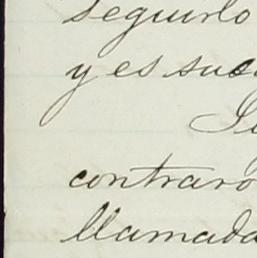 seguirlo
y es suc
contraro
llamada